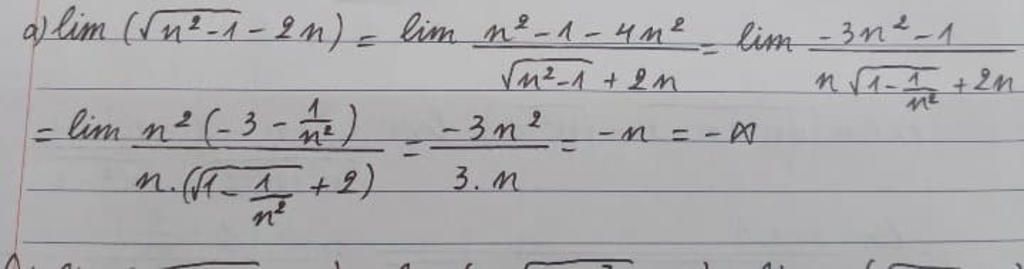 a) lim (√(n²-1) - 2n) = lim (n² - 1 - 4n²)/(√(n²-1) + 2n) = lim (-3n² - 1)/(n√(1 - 1/n²) + 2n)
= lim (n²(-3 - 1/n²))/(n.(√(1 - 1/n²) + 2)) = (-3n²)/(3.n) = -n = -∞